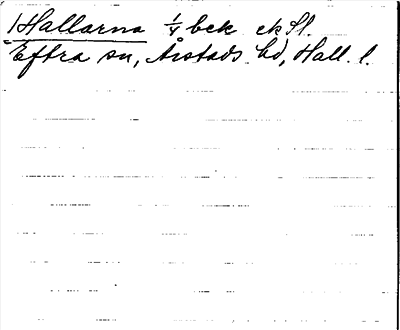 Hallarna 1/4 bek ek Sl.
Eftra sn, Årstads hd, Hall. l.